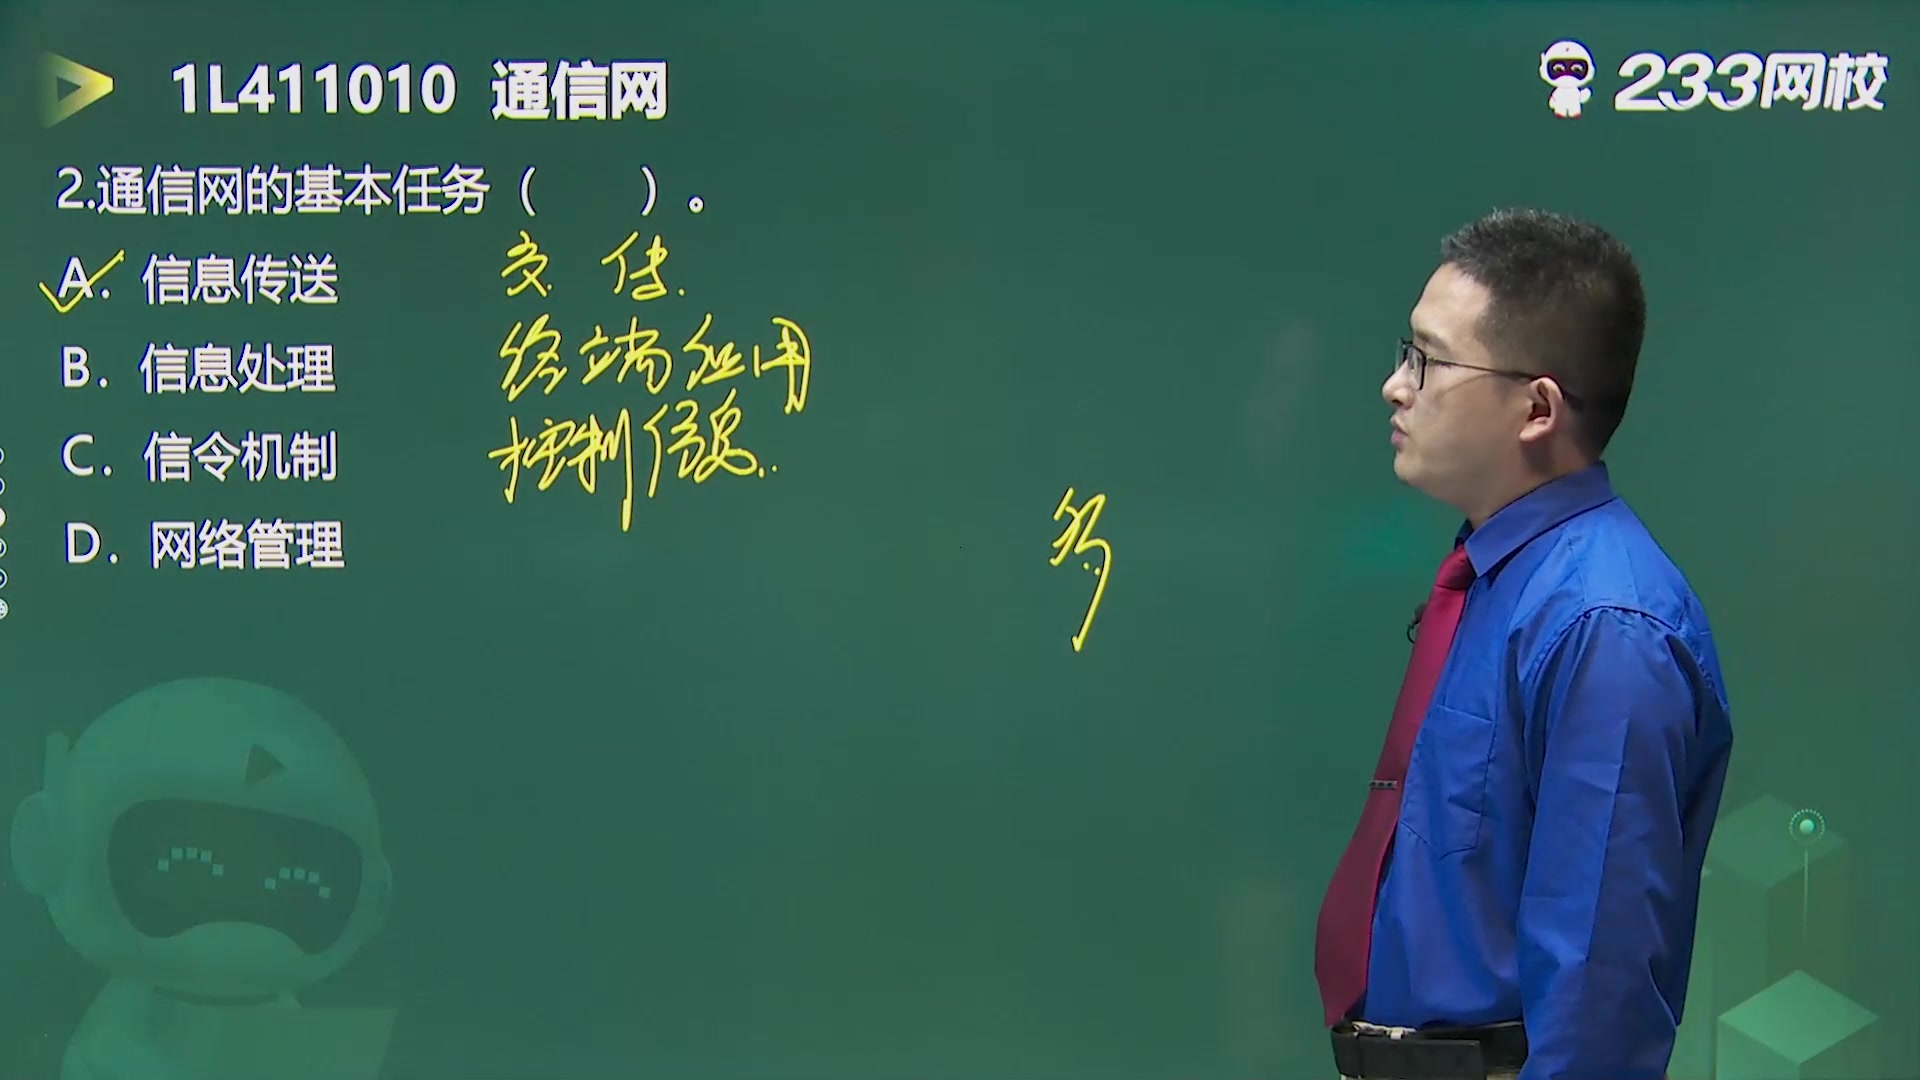 1L411010 通信网
233网校
2.通信网的基本任务（ ）。
A. 信息传送
交 传.
B. 信息处理
终端应用
C. 信令机制
控制信息..
D. 网络管理